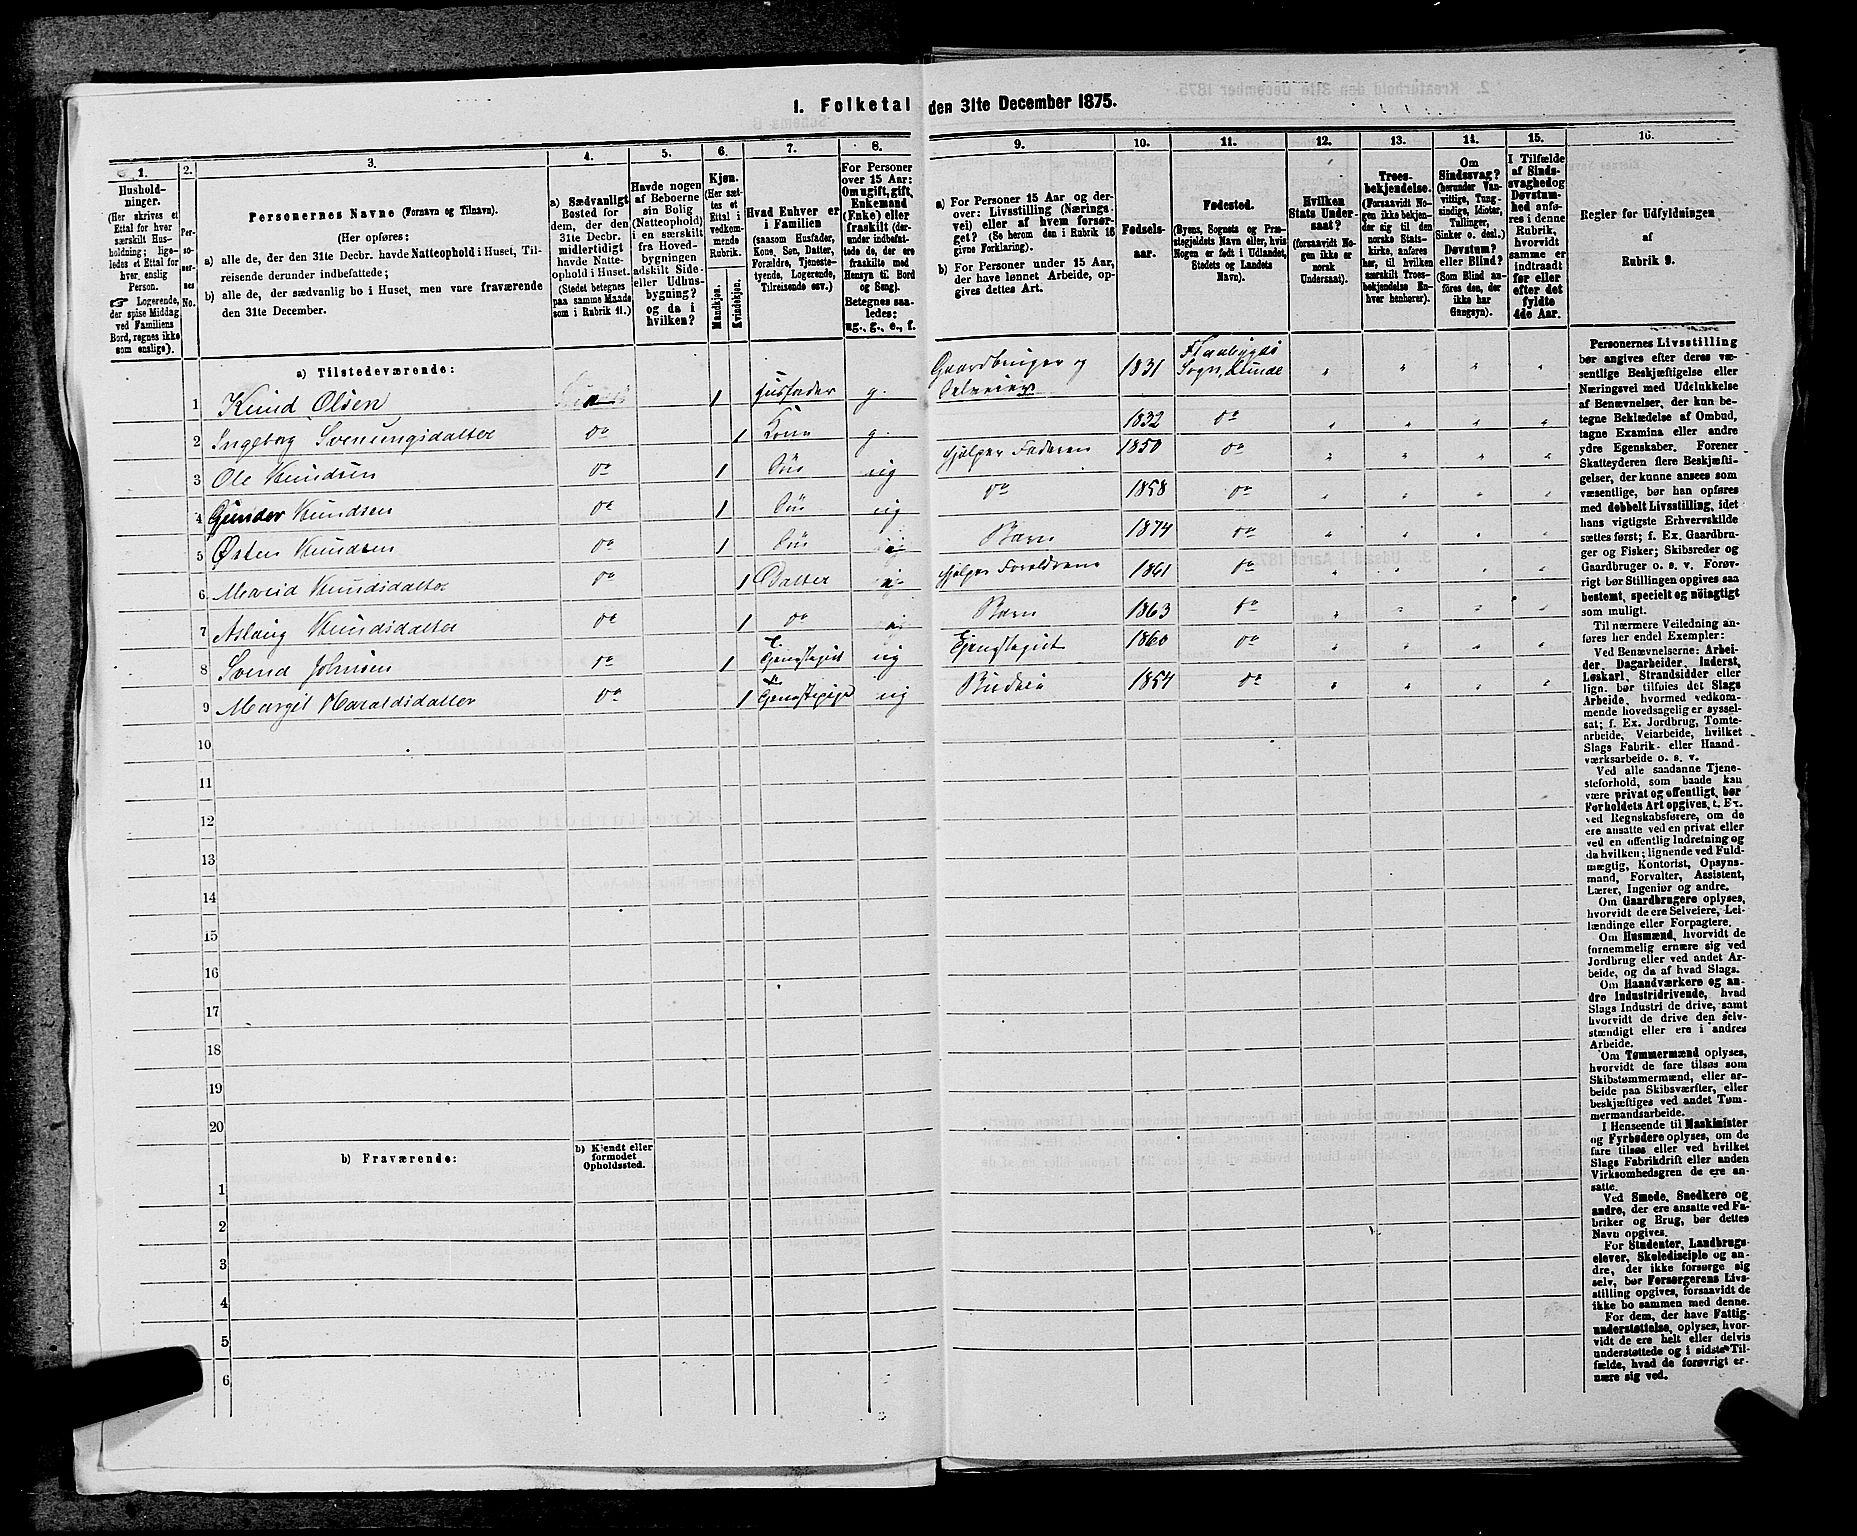 1. Folketal den 31te December 1875.
1.
Husholdninger.
(Her skrives et
Ettal for hver
særskilt Husholdning;
ligeledes et Ettal for
hver, enslig
Person.
☞ Logerende,
der spise Middag
ved Familiens
Bord, regnes ikke
som enslige).
2.
Personernes
No.
3.
Personernes Navne (Fornavn og Tilnavn).
(Her opføres:
a) alle de, der den 31te Decbr. havde Natteophold i Huset, Tilreisende
derunder indbefattede;
b) alle de, der sædvanlig bo i Huset, men vare fraværende
den 31te December.
4.
a) Sædvanligt
Bosted for
dem, der den
31te Decbr.
midlertidigt
havde Natteophold
i Huset.
(Stedet betegnes
paa samme Maade
som i Rubrik 11.)
5.
Havde nogen
af Beboerne
sin Bolig
(Natteophold)
i en særskilt
fra Hovedbygningen
adskilt Side-
eller Udhusbygning?
og da i
hvilken?
6.
Kjøn.
(Her sættes
et
Ettal i
vedkommende
Rubrik.
Mandkjøn.
Kvindekjøn.
7.
Hvad Enhver er
i Familien
(saasom Husfader,
Kone, Søn, Datter,
Forældre, Tjenestetyende,
Logerende,
Tilreisende osv.)
8.
For Personer
over 15 Aar:
Om ugift, gift,
Enkemand
(Enke) eller
fraskilt (derunder
indbefattede,
de ere
fraskilte med
Hensyn til Bord
og Seng).
Betegnes saaledes:
ug., g., e., f.
9.
a) For Personer 15 Aar og derover:
Livsstilling (Næringsvei)
eller af hvem forsørget?
(Se herom den i Rubrik 16
givne Forklaring).
b) For Personer under 15 Aar,
der have lønnet Arbeide, opgives
dettes Art.
10.
Fødselsaar.
11.
Fødested.
(Byens, Sognets og Præstegjeldets
Navn eller, hvis
Nogen er født i Udlandet,
Stedets og Landets
Navn).
12.
Hvilken
Stats Undersaat?
(forsaavidt Nogen
ikke er
norsk
Undersaat).
13.
Troesbekjendelse.
(Forsaavidt Nogen
ikke bekjender
sig til den
norske Statskirke,
anføres
her, til hvilken
særskilt Troesbekjendelse
Enhver
henhører).
14.
Om
Sindssvag?
(herunder Vanvittige,
Tungsindige,
Idioter,
Tullinger,
Sinker o. desl.)
Døvstum?
eller Blind?
(Som Blind anføres
den, der
ikke har
Gangsyn).
15.
I Tilfælde
af Sindssvaghed
og
Døvstumhed
anføres
i denne
Rubrik,
hvorvidt
samme er
indtraadt
før eller
efter det
fyldte
4de Aar.
16.
Regler for Udfyldningen
af
Rubrik 9.
a) Tilstedeværende:
1 Knud Olsen 1 Husfader g. Gaardbruger og Selveier 1831 Flaabygds Sogn, Lunde " " " "
2 Ingeborg Svenungsdatter do 1 Kone g. 1832 do " " " "
3 Ole Knudsen do 1 Søn ug hjelper Faderen 1850 do " " " "
4 Gunder Knudsen do 1 Søn ug do 1858 do " " " "
5 Østen Knudsen do 1 Søn Barn 1874 do " " " "
6 Marid Knudsdatter do 1 Datter hjelper Foreldrene 1861 do " " " "
7 Aslaug Knudsdatter do 1 do Barn 1863 do " " " "
8 Svend Johnsen do 1 Tjenstegut ug Tjenstegut 1860 do " " " "
9 Margit Haraldsdatter do 1 Tjenstepige ug Budeie 1854 do " " " "
10
11
12
13
14
15
16
17
18
19
20
b) Fraværende:
b) Kjendt eller
formodet
Opholdssted.
1
2
3
4
5
6
Personernes Livsstilling
bør angives efter deres væsentlige
Beskjæftigelse eller
Næringsvei med Udelukkelse
af Benævnelser, der kun betegne
Beklædelse af Ombud,
tagne Examina eller andre
ydre Egenskaber. Forener
Skatteyderen flere Beskjæftigelser,
der kunne ansees som
væsentlige, bør han opføres
med dobbelt Livsstilling, idet
hans vigtigste Erhvervskilde
sættes først; f. Ex. Gaardbruger
og Fisker; Skibsreder og
Gaardbruger o. s. v. Forøvrigt
bør Stillingen opgives saa
bestemt, specielt og nöiagtigt
som muligt.
Til nærmere Veiledning anføres
her endel Exempler:
Ved Benævnelserne: Arbeider,
Dagarbeider, Inderst,
Løskarl, Strandsidder eller
lign. bør tilføies det Slags
Arbeide, hvormed vedkommende
hovedsagelig er sysselsat;
f. Ex. Jordbrug, Tomtearbeide,
Veiarbeide, hvilket
Slags Fabrik- eller Haandværksarbeide
o. s. v.
Ved alle saadanne Tjenesteforhold,
som baade kan
være privat og offentligt, bør
Forholdets Art opgives, t. Ex.
ved Regnskabsførere, om de
ere ansatte ved en privat eller
ved en offentlig Indretning og
da hvilken; lignende ved Fuldmægtig,
Kontorist, Opsynsmand,
Forvalter, Assistent,
Lærer, Ingeniør og andre.
Om Gaardbrugere oplyses,
hvorvidt de ere Selveiere, Leilændinge
eller Forpagtere.
Om Husmænd, hvorvidt de
fornemmelig ernære sig ved
Jordbrug eller ved andet Arbeide,
og da af hvad Slags.
Om Haandværkere og andre
Industridrivende, hvad
Slags Industri de drive, samt
hvorvidt de drive den selvstændigt
eller ere i andres
Arbeide.
Om Tømmermænd oplyses,
hvorvidt de fare tilsøs som
Skibstømmermænd, eller arbeide
paa Skibsværfter, eller
beskjæftiges ved andet Tømmermandsarbeide.
I Henseende til Maskinister
og Fyrbødere oplyses, om de
fare tilsøs eller ved hvilket
Slags Fabrikdrift eller anden
Virksomhedsgren de ere ansatte.
Ved Smede, Snedkere og
andre, der ere ansatte ved Fabriker
og Brug, bør dettes
Navn opgives.
For Studenter, Landbrugselever,
Skoledisciple og andre,
der ikke forsørge sig
selv, bør Forsørgerens Livsstilling
opgives, forsaavidt de
ikke bo sammen med denne.
For dem, der have Fattigunderstøttelse,
oplyses, hvorvidt
de ere helt eller delvis
understøttede og i sidste Tilfælde,
hvad de forøvrigt ernære
sig ved.